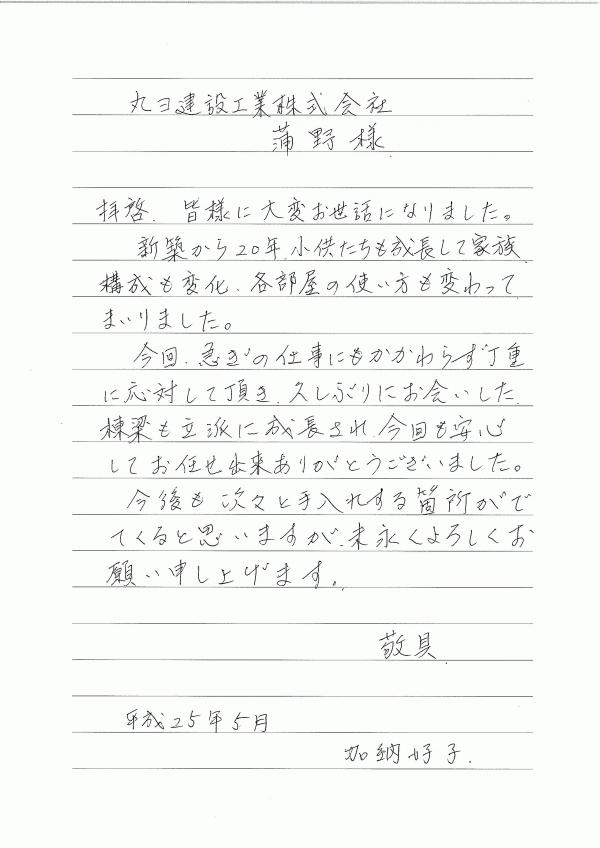 丸ヨ建設工業株式会社
蒲野様
拝啓、皆様に大変お世話になりました。
新築から20年、小供たちも成長して家族
構成も変化、各部屋の使い方も変わって
まいりました。
今回、急ぎの仕事にもかかわらず丁重
に応対して頂き、久しぶりにお会いした
棟梁も立派に成長され、今回も安心
してお任せ出来ありがとうございました。
今後も次々と手入れする箇所がで
てくると思いますが、末永くよろしくお
願い申し上げます。
敬具
平成25年5月
加納好子